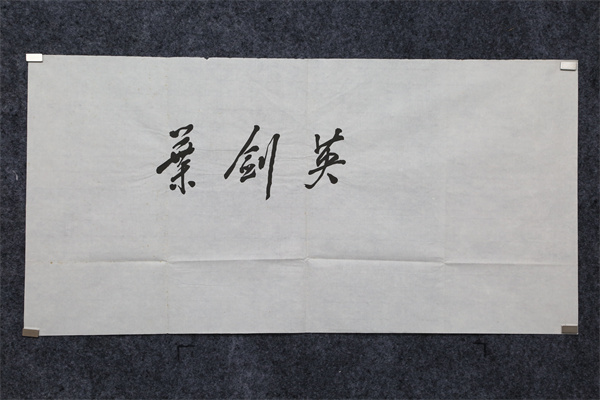 葉剑英